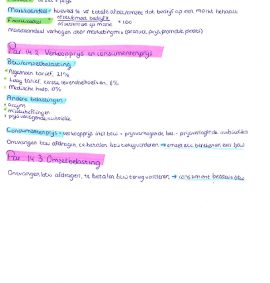 Marktaandeel = hoeveel % vd totale afzet/omzet dat bedrijf op een markt behaalt
Formule: afzet/omzet bedrijf × 100
afzet/omzet op markt
marktaandeel verhogen door marketingmix (product, prijs, promotie, plaats)
Par. 14.2 Verkoopprijs en consumentenprijs
Btw/omzetbelasting
Algemeen tarief, 21%
Laag tarief, eerste levensbehoeften,
Medische hulp, 0%
Andere belastingen
accijns
milieuheffingen
prijsverlagende subsidie
Consumentenprijs = verkoopprijs excl btw + prijsverhogende bel. - prijsverlagende subsidies
Ontvangen btw afdragen, te betalen btw terugvorderen →
Par 14.3 Omzetbelasting
Ontvangen btw afdragen, te betalen btw terugvorderen → consument betaalt btw